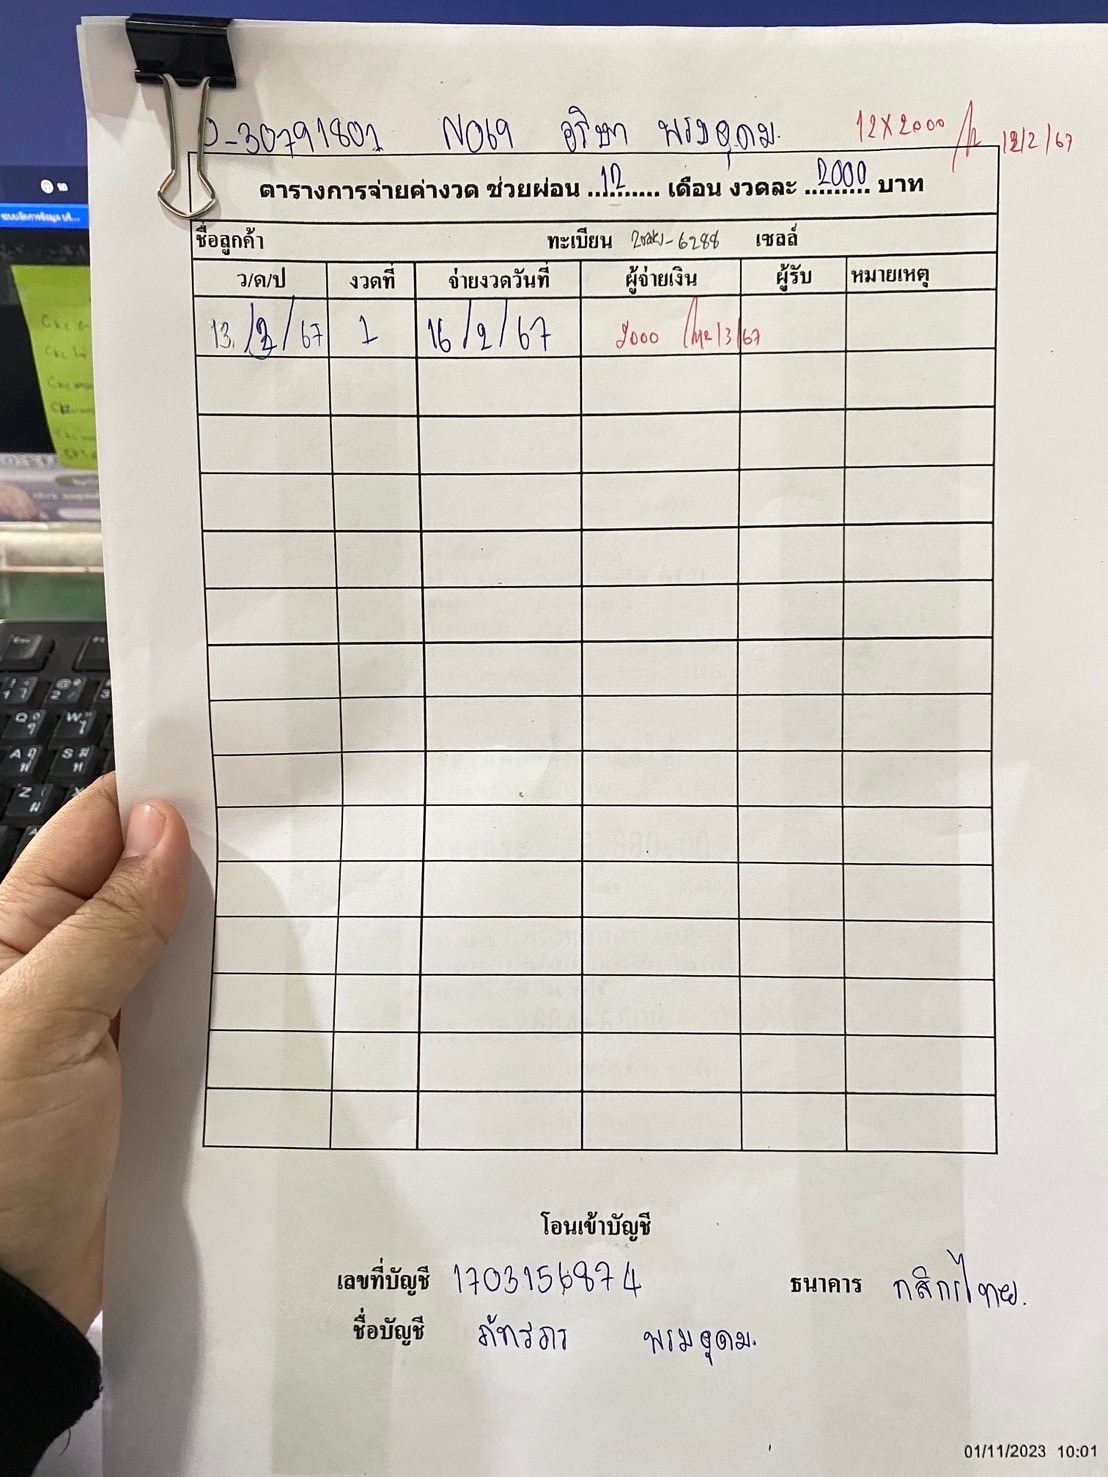 -30791801 NO69 อริษา พรมอุดม. 12X2000 12/2/67
ตารางการจ่ายค่างวด ช่วยผ่อน ...12... เดือน งวดละ ...2000... บาท
ชื่อลูกค้า ทะเบียน -6288 เซลล์
ว/ด/ป งวดที่ จ่ายงวดวันที่ ผู้จ่ายเงิน ผู้รับ หมายเหตุ
13/2/67 1 16/2/67 2000 /3/67
โอนเข้าบัญชี
เลขที่บัญชี 1703156874 ธนาคาร กสิกรไทย.
ชื่อบัญชี ภัทรภร พรมอุดม.
01/11/2023 10:01